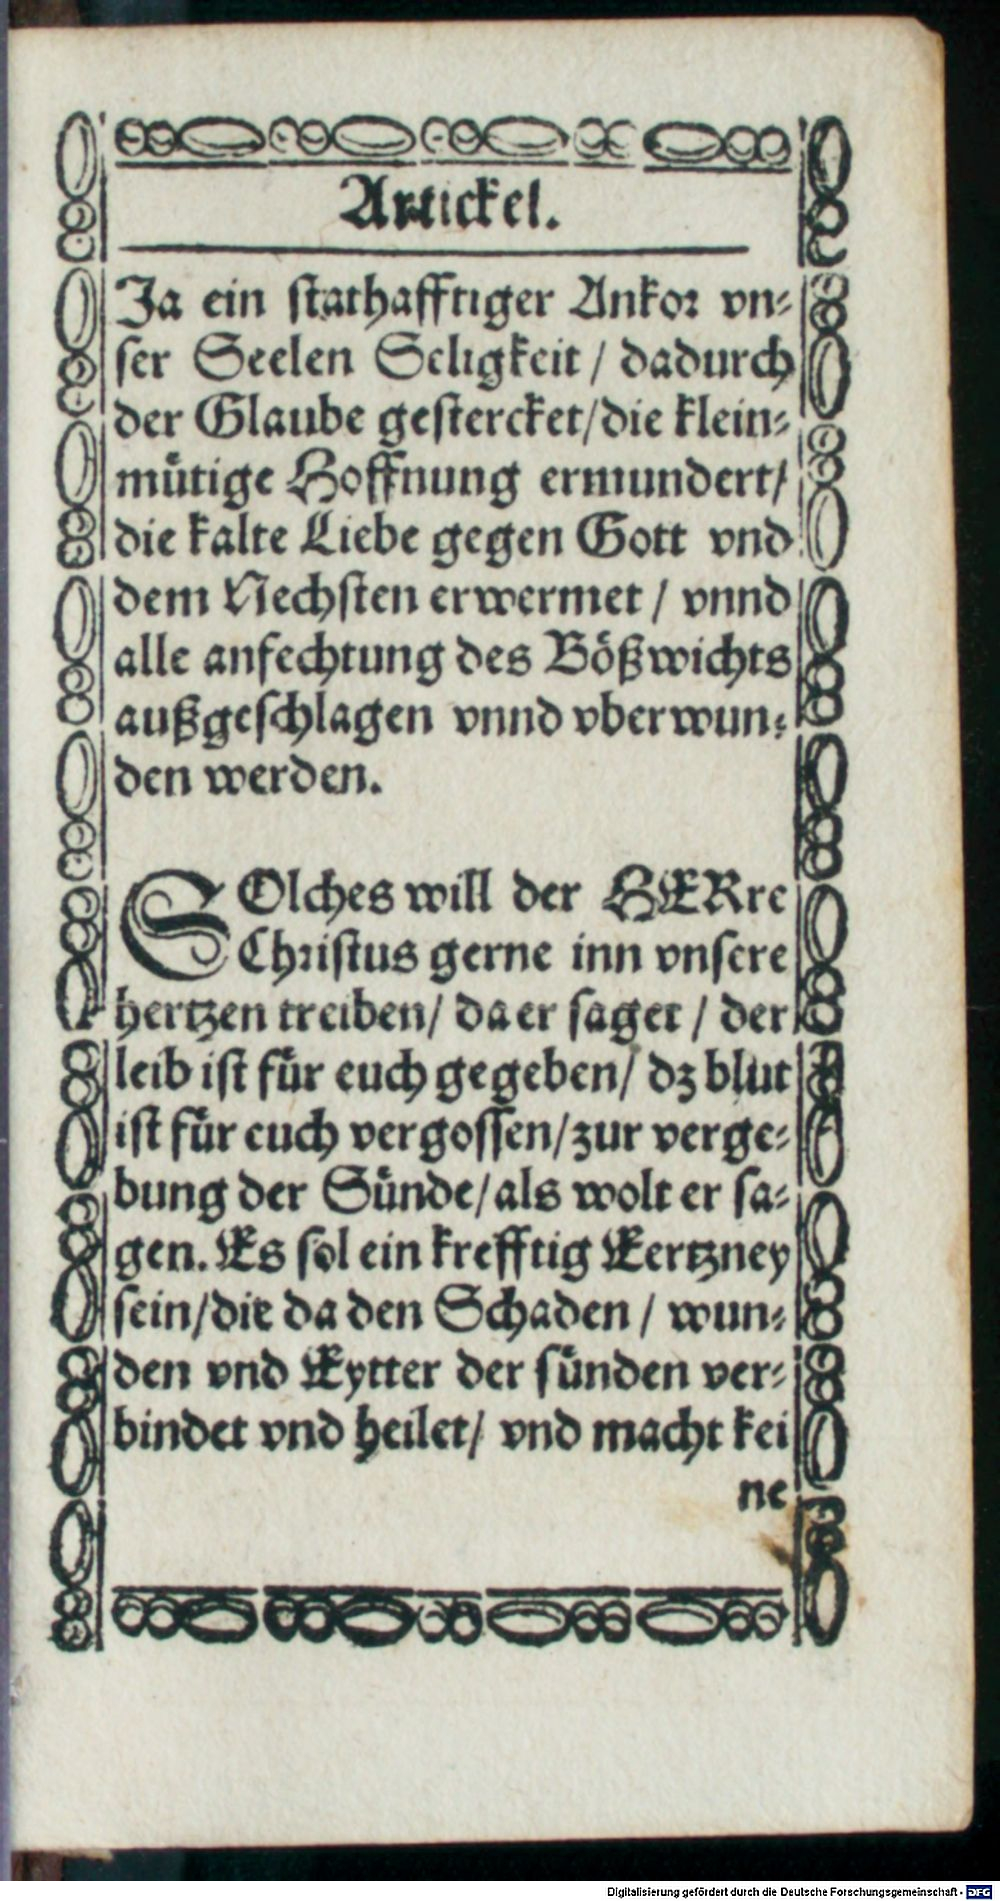 Artickel.
Ja ein stathafftiger Ankor vn⸗
ser Seelen Seligkeit / dadurch
der Glaube gestercket/die klein⸗
muͤtige Hoffnung ermundert/
die kalte Liebe gegen Gott vnd
dem Nechsten erwermet / vnnd
alle anfechtung des Boͤßwichts
außgeschlagen vnnd vberwun⸗
den werden.
SOlches will der HERre
Christus gerne inn vnsere
hertzen treiben/ da er saget / der
leib ist fuͤr euch gegeben/ dz blut
ist fuͤr euch vergossen/zur verge⸗
bung der Suͤnde/als wolt er sa⸗
gen. Es sol ein krefftig Eertzney
sein/die da den Schaden / wun⸗
den vnd Eytter der suͤnden ver⸗
bindet vnd heilet/ vnd macht kei
ne
Digitalisierung gefördert durch die Deutsche Forschungsgemeinschaft - DFG